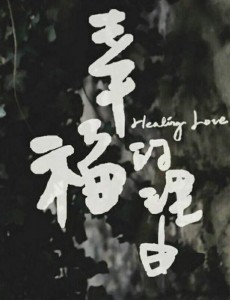 幸福
的理由
Healing Love